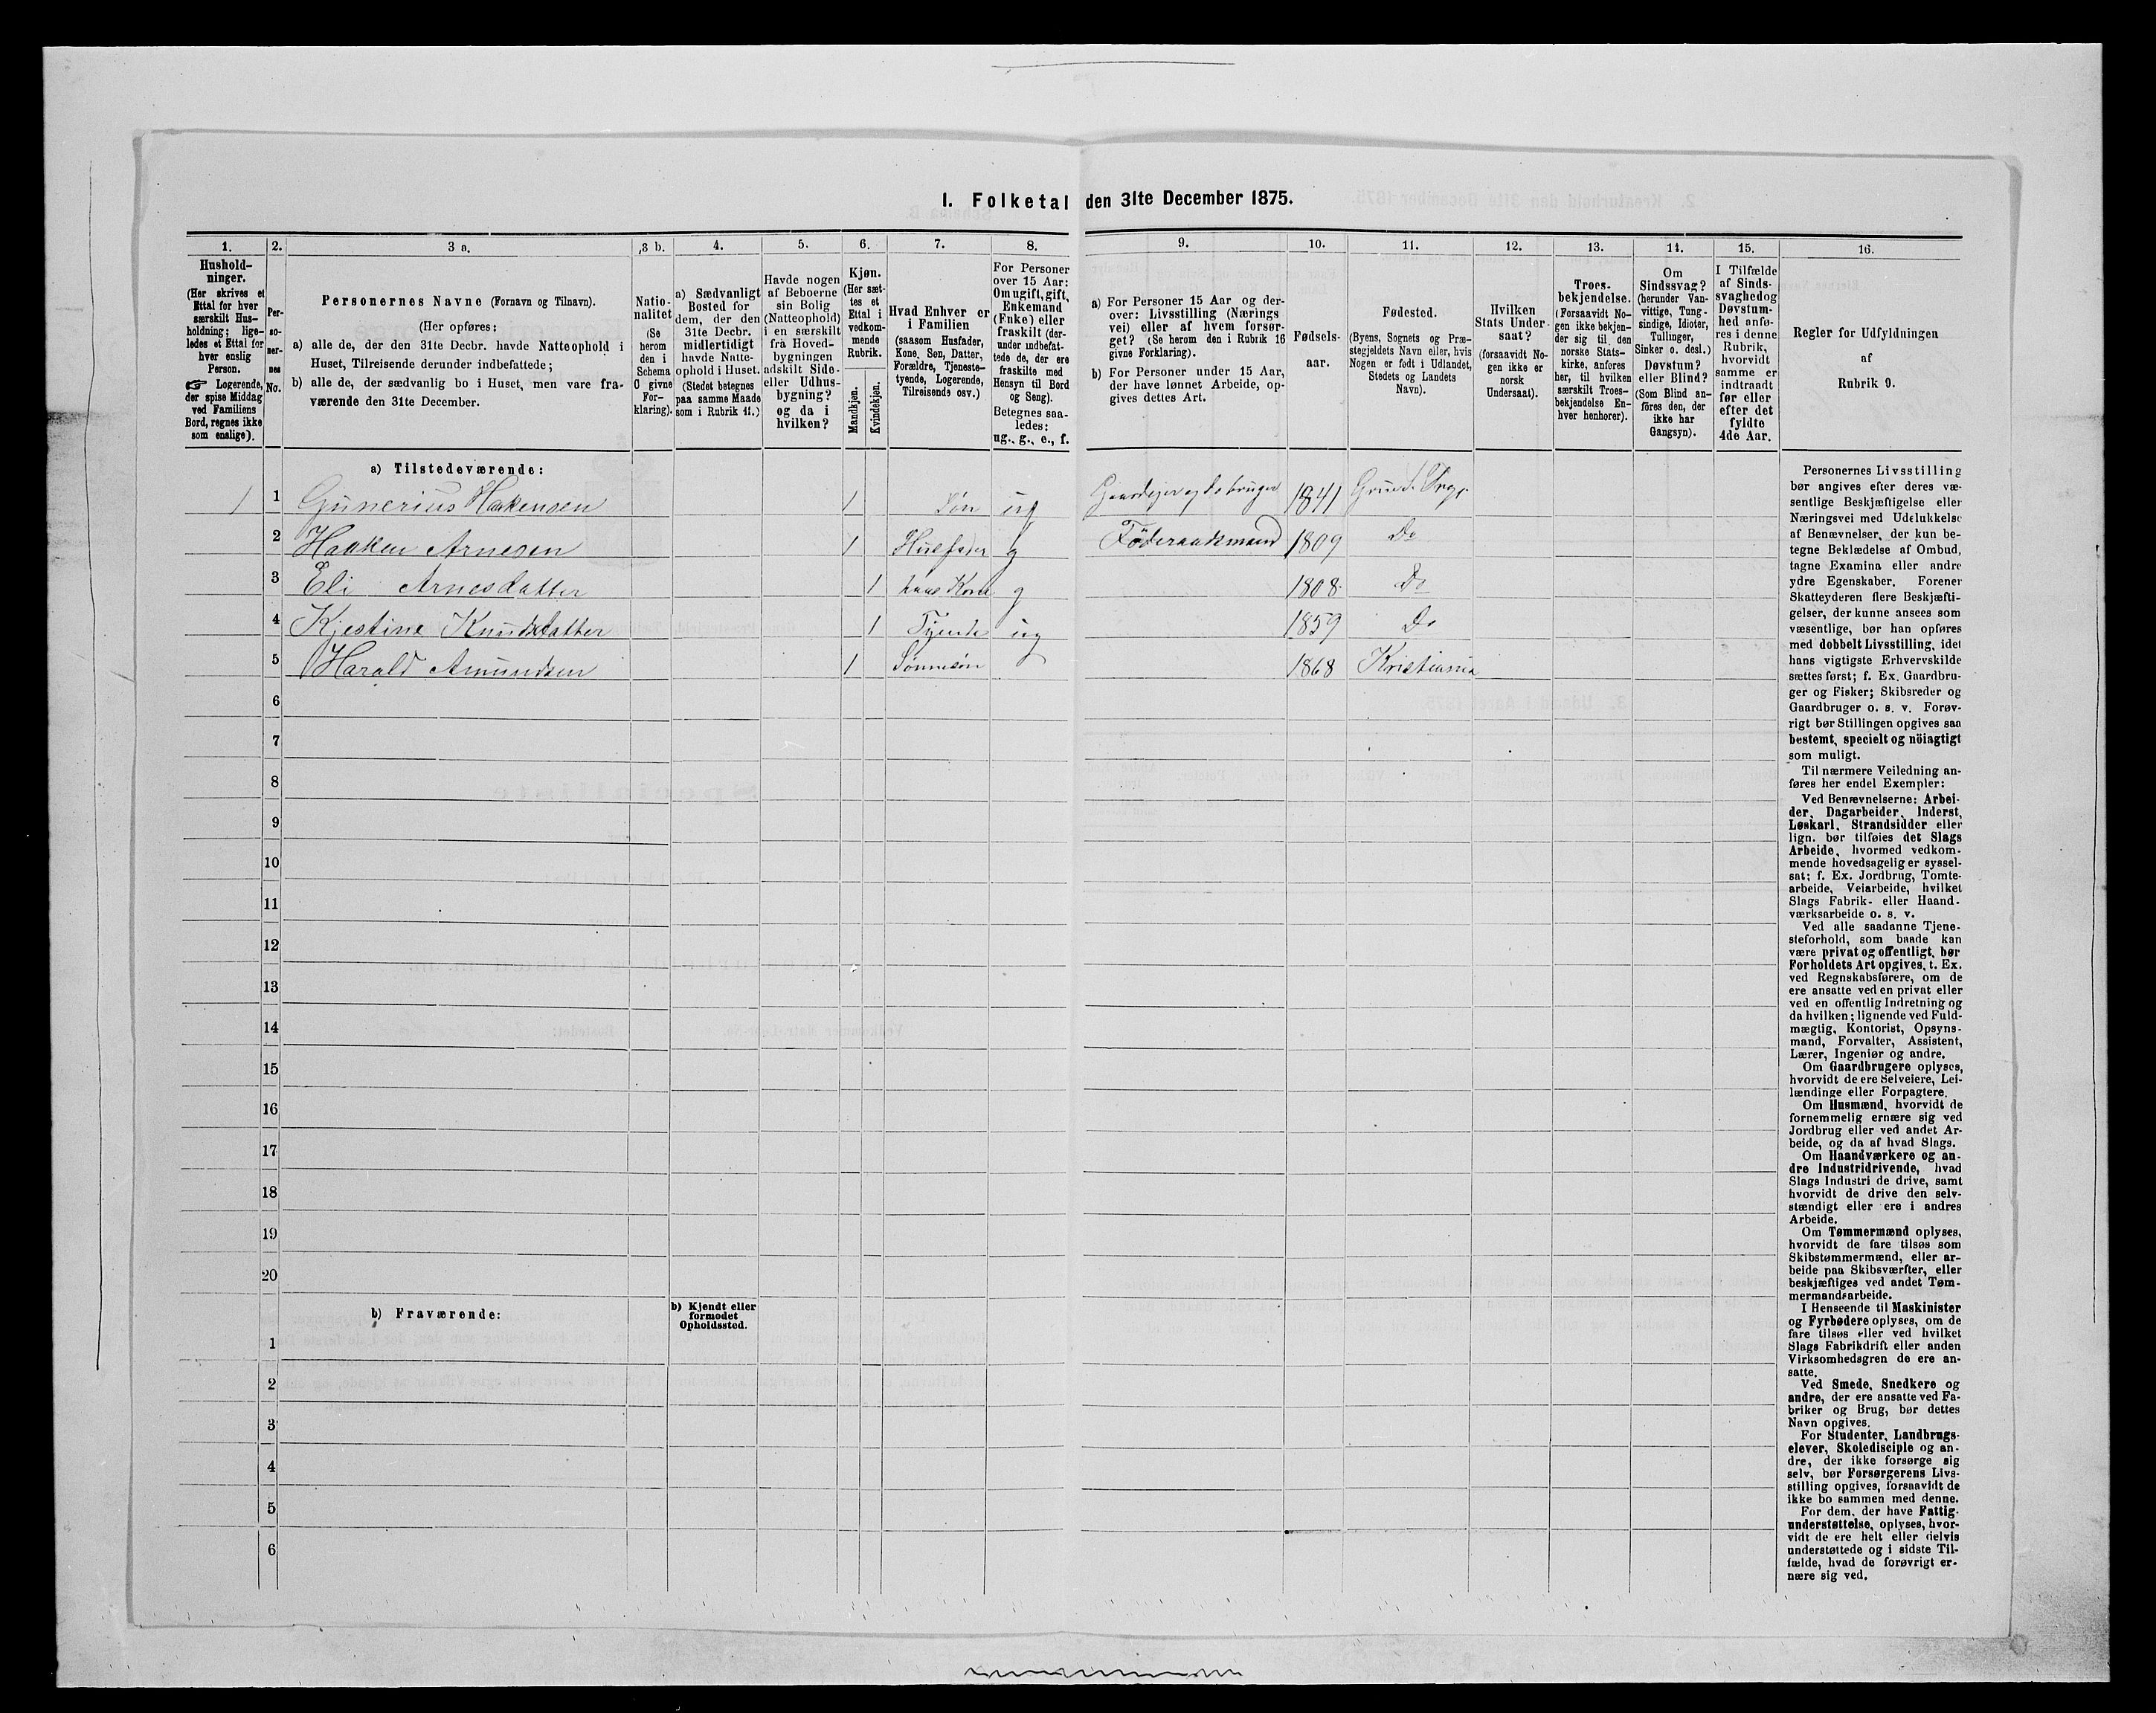 I. Folketal den 31te December 1875.
1. 2. 3 a. 3 b. 4. 5. 6. 7. 8. 9. 10. 11. 12. 13. 14. 15. 16.
Hushold-
ninger.
(Her skrives et
Ettal for hver
særskilt Hus-
holdning; lige-
ledes et Ettal for
hver enslig
Person.
☞ Logerende,
der spise Middag
ved Familiens
Bord, regnes ikke
som enslige).
Per-
so-
ner-
nes
No.
Personernes Navne (Fornavn og Tilnavn).
(Her opføres:
a) alle de, der den 31te Decbr. havde Natteophold i
Huset, Tilreisende derunder indbefattede;
b) alle de, der sædvanlig bo i Huset, men vare fra-
værende den 31te December.
Natio-
nalitet
(Se
herom
den i
Schema
C givne
For-
klaring).
a) Sædvanligt
Bosted for
dem, der den
31te Decbr.
midlertidigt
havde Natte-
ophold i Huset.
(Stedet betegnes
paa samme Maade
som i Rubrik 11.)
Havde nogen
af Beboerne
sin Bolig
(Natteophold)
i en særskilt
fra Hoved-
bygningen
adskilt Side-
eller Udhus-
bygning?
og da i
hvilken?
Kjøn.
(Her sæt-
tes et
Ettal i
vedkom-
mende
Rubrik.
Mandkjøn.
Kvindekjøn.
Hvad Enhver er
i Familien
(saasom Husfader,
Kone, Søn, Datter,
Forældre, Tjeneste-
tyende, Logerende,
Tilreisende osv.)
For Personer
over 15 Aar:
Om ugift, gift,
Enkemand
(Enke) eller
fraskilt (der-
under indbefat-
tede de, der ere
fraskilte med
Hensyn til Bord
og Seng).
Betegnes saa-
ledes:
ug., g., e., f.
a) For Personer 15 Aar og der-
over: Livsstilling (Nærings
vei) eller af hvem forsør-
get? (Se herom den i Rubrik 16
givne Forklaring).
b) For Personer under 15 Aar,
der have lønnet Arbeide, op-
gives dettes Art.
Fødsels-
aar.
Fødested.
(Byens, Sognets og Præ-
stegjeldets Navn eller, hvis
Nogen er født i Udlandet,
Stedets og Landets
Navn).
Hvilken
Stats Under-
saat?
(forsaavidt No-
gen ikke er
norsk
Undersaat).
Troes-
bekjendelse.
(Forsaavidt No-
gen ikke bekjen-
der sig til den
norske Stats-
kirke, anføres
her, til hvilken
særskilt Troes-
bekjendelse En-
hver henhører).
Om
Sindssvag?
(herunder Van-
vittige, Tung-
sindige, Idioter,
Tullinger,
Sinker o. desl.)
Døvstum?
eller Blind?
(Som Blind an-
føres den, der
ikke har
Gangsyn).
I Tilfælde
af Sinds-
svaghed og
Døvstum-
hed anfø-
res i denne
Rubrik,
hvorvidt
samme er
indtraadt
før eller
efter det
fyldte
4de Aar.
Regler for Udfyldningen
af
Rubrik 9.
a) Tilstedeværende:
1 1 Gunerius Haakensen 1 Søn ug 1841
2 Haaken Arnesen 1 Husfader g Föderaadsmand 1809 Do
3 Eli Arnesdatter 1 hans Kone g 1808 Do
4 Kjestine Knudsdatter 1 Tyende ug 1859 Do
5 Harald Amundsen 1 Sönnesön 1868 Kristiania
6
7
8
9
10
11
12
13
14
15
16
17
18
19
20
b) Fraværende:
b) Kjendt eller
formodet
Opholdssted.
1
2
3
4
5
6
Personernes Livsstilling
bør angives efter deres væ-
sentlige Beskjæftigelse eller
Næringsvei med Udelukkelse
af Benævnelser, der kun be-
tegne Beklædelse af Ombud,
tagne Examina eller andre
ydre Egenskaber. Forener
Skatteyderen flere Beskjæfti-
gelser, der kunne ansees som
væsentlige, bør han opføres
med dobbelt Livsstilling, idet
hans vigtigste Erhvervskilde
sættes først; f. Ex. Gaardbru-
ger og Fisker; Skibsreder og
Gaardbruger o. s. v. Forøv-
rigt bør Stillingen opgives saa
bestemt, specielt og nöiagtigt
som muligt.
Til nærmere Veiledning an-
føres her endel Exempler:
Ved Benævnelserne: Arbei-
der, Dagarbeider, Inderst,
Løskarl, Strandsidder eller
lign. bør tilføies det Slags
Arbeide, hvormed vedkom-
mende hovedsagelig er syssel-
sat; f. Ex. Jordbrug, Tomte-
arbeide, Veiarbeide, hvilket
Slags Fabrik- eller Haand-
værksarbeide o. s. v.
Ved alle saadanne Tjene-
steforhold, som baade kan
være privat og offentligt, bør
Forholdets Art opgives, t. Ex.
ved Regnskabsførere, om de
ere ansatte ved en privat eller
ved en offentlig Indretning og
da hvilken; lignende ved Fuld-
mægtig, Kontorist, Opsyns-
mand, Forvalter, Assistent,
Lærer, Ingeniør og andre.
Om Gaardbrugere oplyses,
hvorvidt de ere Selveiere, Lei-
lændinge eller Forpagtere.
Om Husmænd, hvorvidt de
fornemmelig ernære sig ved
Jordbrug eller ved andet Ar-
beide, og da af hvad Slags.
Om Haandværkere og an-
dre Industridrivende, hvad
Slags Industri de drive, samt
hvorvidt de drive den selv-
stændigt eller ere i andres
Arbeide.
Om Tømmermænd oplyses,
hvorvidt de fare tilsøs som
Skibstømmermænd, eller ar-
beide paa Skibsværfter, eller
beskjæftiges ved andet Tøm-
mermandsarbeide.
I Henseende til Maskinister
og Fyrbødere oplyses, om de
fare tilsøs eller ved hvilket
Slags Fabrikdrift eller anden
Virksomhedsgren de ere an-
satte.
Ved Smede, Snedkere og
andre, der ere ansatte ved Fa-
briker og Brug, bør dettes
Navn opgives.
For Studenter, Landbrugs-
elever, Skoledisciple og an-
dre, der ikke forsørge sig
selv, bør Forsørgerens Livs-
stilling opgives, forsaavidt de
ikke bo sammen med denne.
For dem, der have Fattig-
understøttelse, oplyses, hvor-
vidt de ere helt eller delvis
understøttede og i sidste Til-
fælde, hvad de forøvrigt er-
nære sig ved.